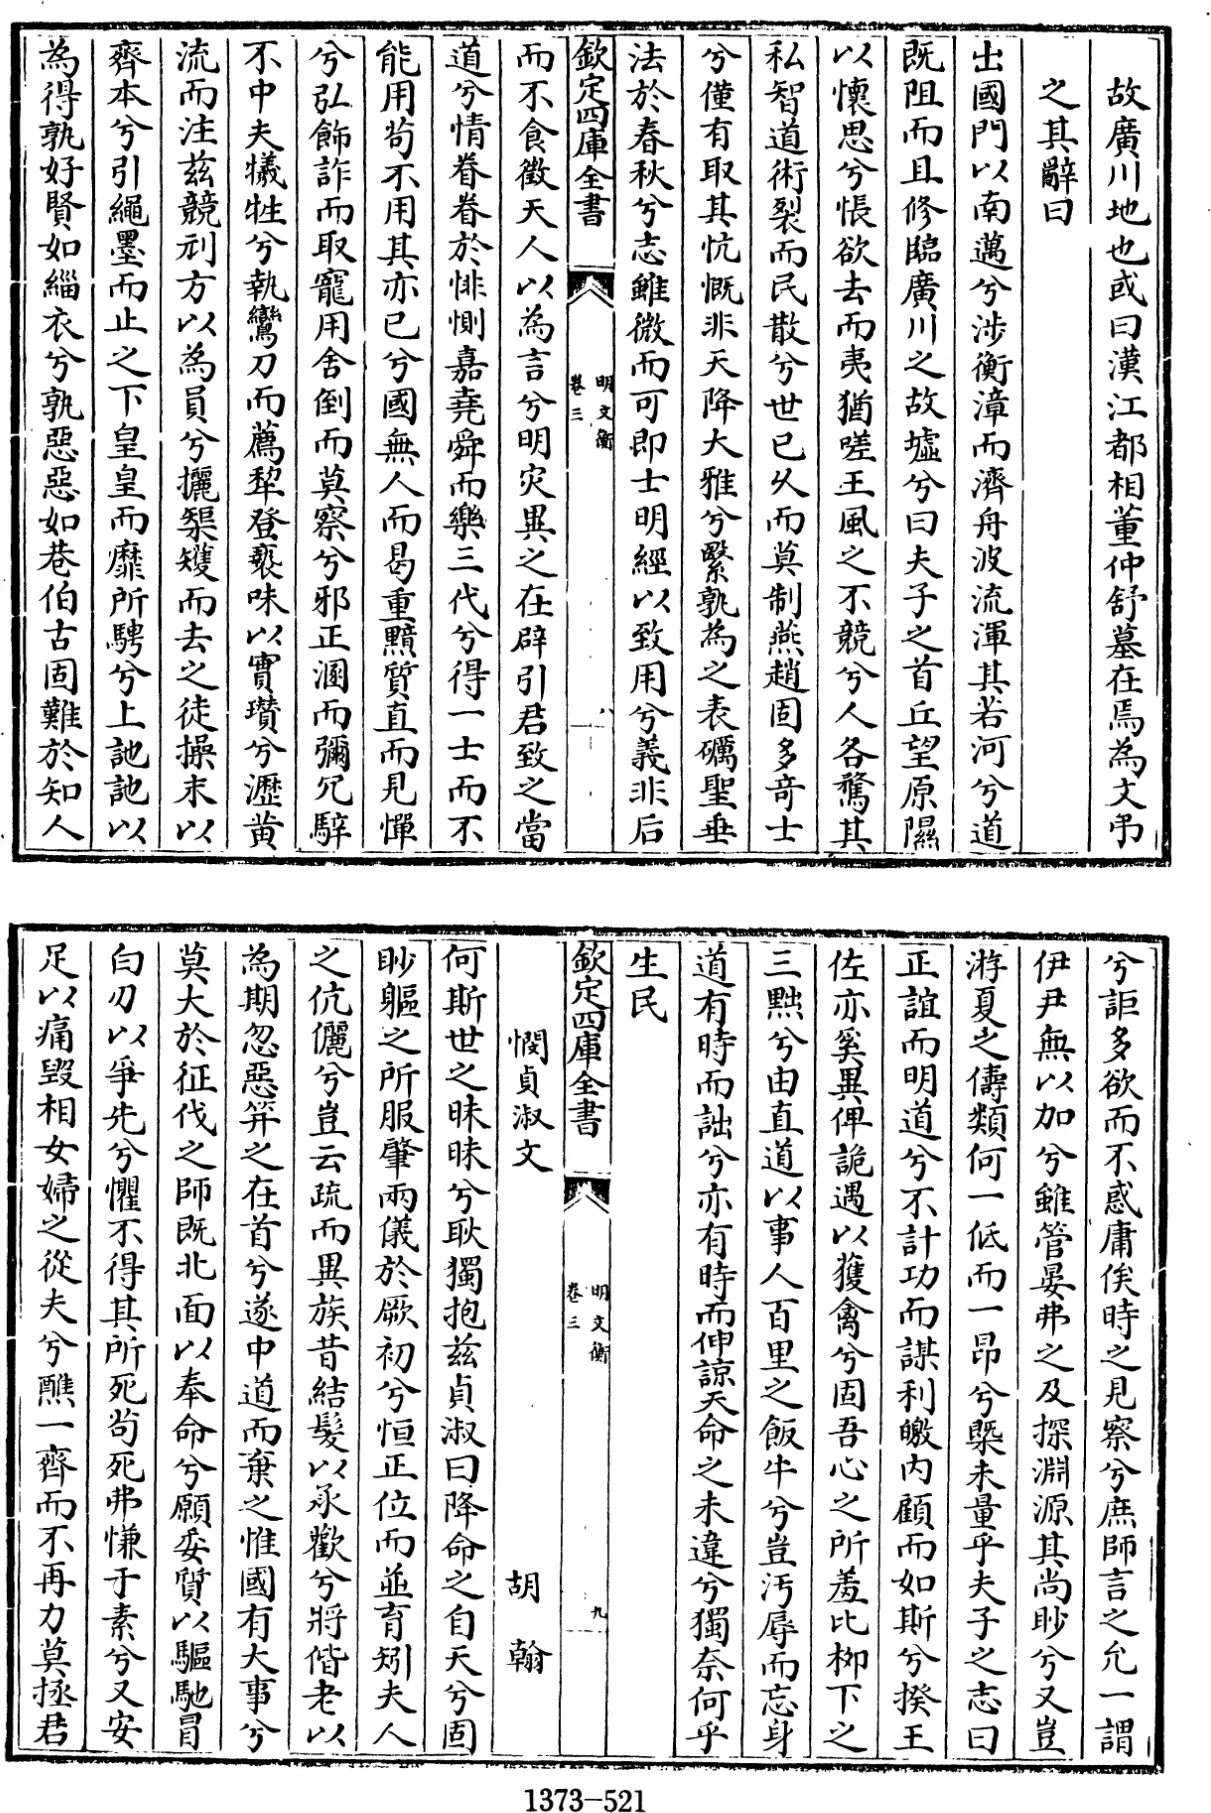 故廣川地也或曰漢江都相董仲舒墓在焉為文弔
之其辭曰
出國門以南邁兮涉衡漳而濟舟波流渾其若河兮道
既阻而且修臨廣川之故墟兮曰夫子之首丘望原隰
以懷思兮悵欲去而夷猶嗟王風之不競兮人各騖其
私智道術裂而民散兮世已久而莫制燕趙固多奇士
兮僅有取其忼慨非天降大雅兮繄孰為之表礪聖垂
法於春秋兮志雖微而可即士明經以致用兮義非后
欽定四庫全書
明文衡
卷三
八
而不食徵天人以為言兮明災異之在辟引君致之當
道兮情眷眷於悱惻嘉堯舜而樂三代兮得一士而不
能用茍不用其亦已兮國無人而曷重黯質直而見憚
兮弘飾詐而取寵用舍倒而莫察兮邪正溷而彌冗騂
不中夫犧牲兮執鸞刀而薦犂登褻味以實瓚兮瀝黄
流而注兹競刓方以為員兮攦榘矱而去之徒操末以
齊本兮引繩墨而止之下皇皇而靡所騁兮上訑訑以
為得孰好賢如緇衣兮孰惡惡如巷伯古固難於知人
兮詎多欲而不惑庸俟時之見察兮庶師言之允一謂
伊尹無以加兮雖管晏弗之及探淵源其尚眇兮又豈
游夏之儔類何一低而一昂兮槩未量乎夫子之志曰
正誼而明道兮不計功而謀利曒内顧而如斯兮揆王
佐亦奚異俾詭遇以獲禽兮固吾心之所羞比柳下之
三黜兮由直道以事人百里之飯牛兮豈汚辱而忘身
道有時而詘兮亦有時而伸諒天命之未違兮獨奈何乎
生民
欽定四庫全書
明文衡
卷三
九
憫貞淑文
胡翰
何斯世之昧昧兮耿獨抱兹貞淑曰降命之自天兮固
眇軀之所服肇兩儀於厥初兮恒正位而並育矧夫人
之伉儷兮豈云疏而異族昔結髮以承歡兮將偕老以
為期忽惡笄之在首兮遂中道而棄之惟國有大事兮
莫大於征伐之師既北面以奉命兮願委質以驅馳冒
白刃以爭先兮懼不得其所死茍死弗慊于素兮又安
足以痛毀相女婦之從夫兮醮一齊而不再力莫拯君
1373-521